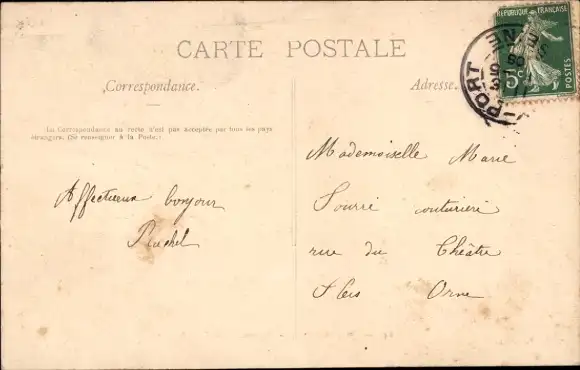 RÉPUBLIQUE FRANÇAISE
5c
POSTES
CARTE POSTALE
Correspondance.
La Correspondance au recto n'est pas acceptée par tous les pays
étrangers. (Se renseigner à la Poste.)
Affectueux bonjour
Rachel
Adresse.
Mademoiselle Marie
Sourré couturière
rue du Théâtre
Flers Orne